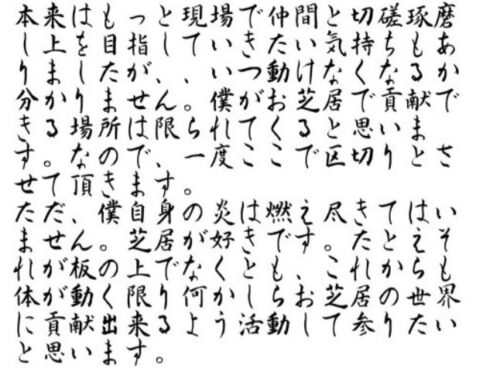 本来はもっと現場で仲間と切磋琢磨
し上を目指していきたい気持ちもあ
りましたが、いつ動けなくなるか
分かりません。僕がお芝居で貢献で
きる場所は限られてくると思いま
す。なので、一度ここで区切りとさ
せて頂きます。
ただ、僕自身の炎は燃え尽きてはい
ません。芝居が好きです。たとえそ
れが板の上でなくとも、これからも
体が動く限り何かしらお芝居の世界
に貢献出来るよう活動して参りたい
と思います。